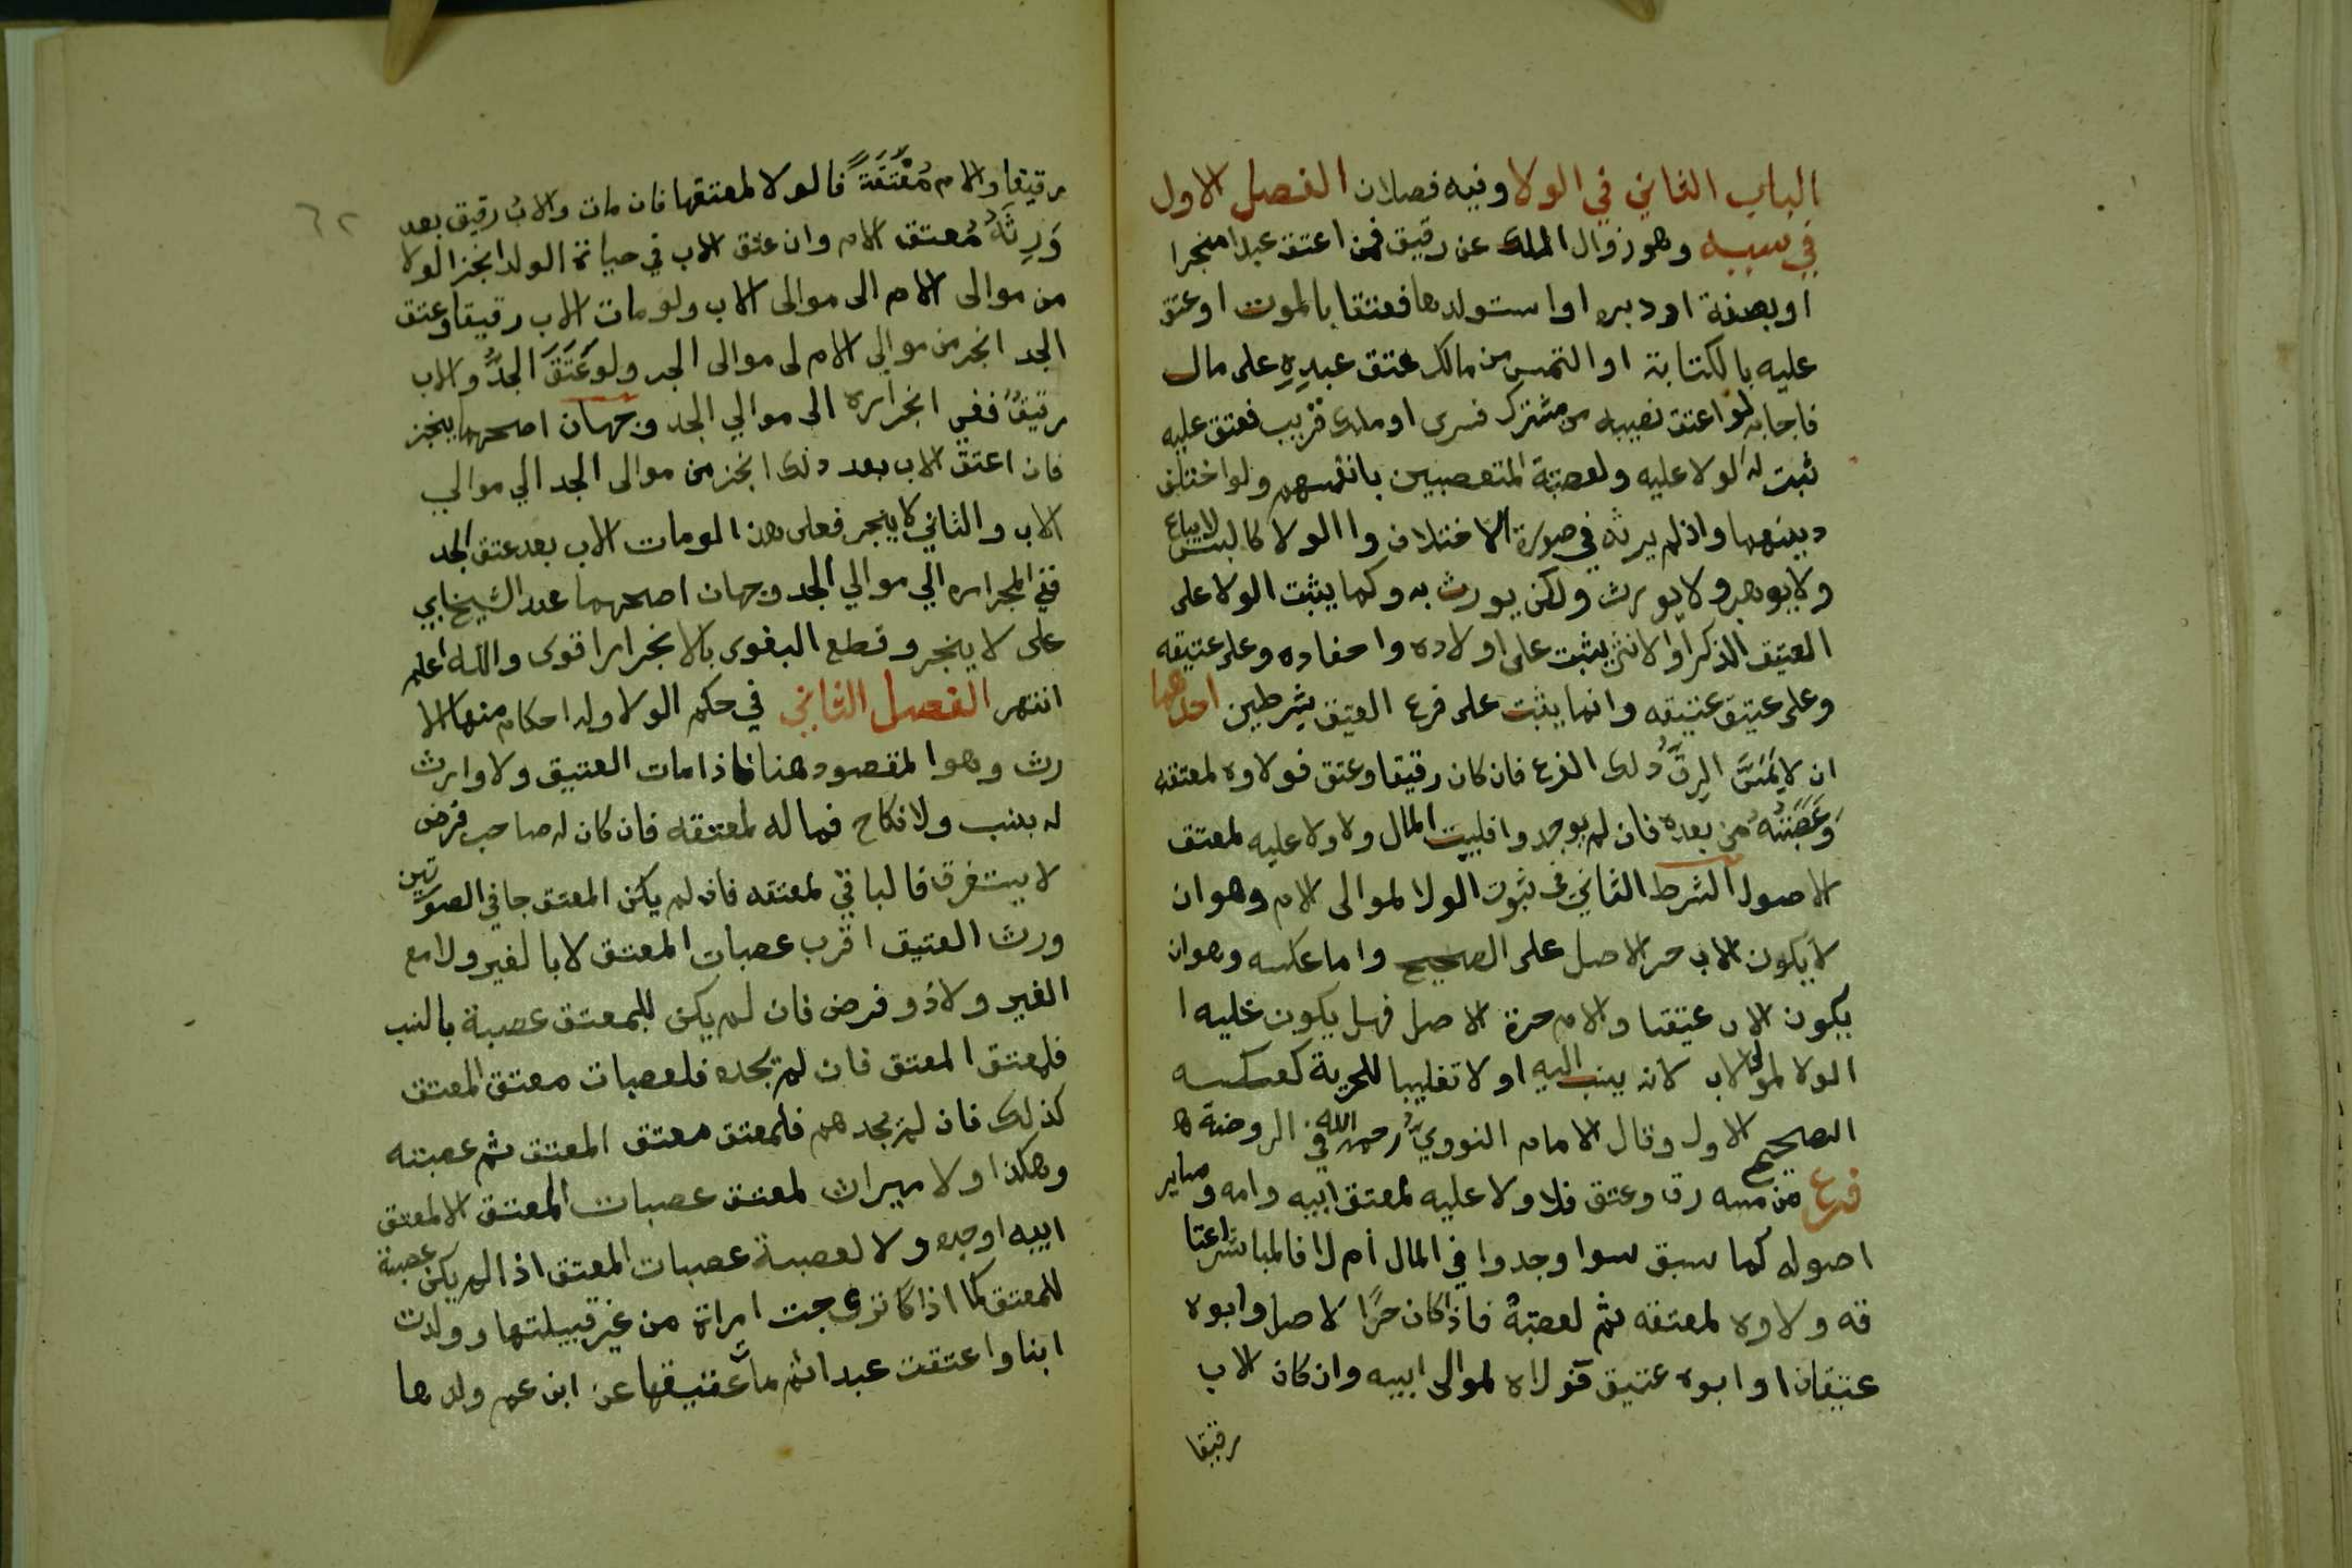 الباب الثاني في الولا وفيه فصلان الفصل الاول
في سببه وهو زوال الملك عن رقيق فمن اعتق عبدا منجزا
او بصفة او دبره او استولدها فعتقا بالموت او عتق
عليه بالكتابة او التمس من مالك عتق عبدِهِ على مال
فاجابه او اعتق نصيبه من مشترك فسرى او ملك قريب فعتق عليه
ثبت له الولا عليه ولعصبته المتعصبين بانفسهم ولو اختلف
دينهما واذ لم يرثه في صورة الاختلاف وا الولا كالنسب لا يباع
ولا يوهب ولا يورث ولكن يورث به وكما يثبت الولا على
العتيق الذكر او الانثى يثبت على اولاده واحفاده وعلى عتيقه
وعلى عتيق عتيقه وانما يثبت على فرع العتيق بشرطين احدهما
ان لا يَمَسَّ الرِقُّ ذلك الفرع فان كان رقيقا وعتق فولاوه لمعتقه
وعَصَبَتُهُ من بعده فان لم يوجدوا فلبيت المال ولا ولا عليه لمعتق
الاصول الشرط الثاني في ثبوت الولا لموالى الام وهو ان
لا يكون الاب حر الاصل على الصحيح واما عكسه وهو ان
يكون الاب عتيقا والام حرة الاصل فهل يكون عليه ا
الولا لموالى الاب لانه ينسب اليه او لا تغليبا للحرية كعكسه
الصحيح الاول وقال الامام النووي رحمه الله في الروضة ه
فرع من مسه رق وعتق فلا ولا عليه لمعتق ابيه وامه وساير
اصوله كما سبق سوا وجدوا في المال أم لا فالمباشر اعتا
قه ولاوه لمعتقه ثم لعصبته فاذا كان حرًا لاصل وابوه
عتيقان او ابوه عتيق فولاه لموالى ابيه وان كان الاب
رقيقا
٦٢
رقيقا والام مُعْتَقَةً فالولا لمعتقها فان مات والابُ رقيق بعد
وَرِثَهُ مُعتق الام وان عتق الاب في حياة الولد انجز الولا
من موالى الام الى موالى الاب ولو مات الاب رقيقا وعتق
الجد انجر من موالي الام لى موالى الجد ولو عَتَقَ الجدُّ والاب
رقيقٌ ففي انجراره الى موالي الجد وجهان اصحهما ينجز
فان اعتق الاب بعد ذلك انجز من موالى الجد الي موالي
الاب والثاني لا ينجر فعلى هذا لو مات الاب بعد عتق الجد
ففي انجراره الي موالي الجد وجهان اصحهما عند الشيخ ابي
على لا ينجر وقطع البغوى بالانجرار اقوى والله اعلم
انتهى الفصل الثاني في حكم الولا وله احكام منها الا
رث وهو المقصود هنا فاذا مات العتيق ولا وارث
له بنسب ولا نكاح فماله لمعتقه فان كان له صاحب فرض
لا يستغرق فالباقي لمعتقه فان لم يكن المعتق حيا في الصورتين
ورث العتيق اقرب عصبات المعتق لا بالغير ولا مع
الغير ولا ذو فرض فان لم يكن للمعتق عصبة بالنسب
فلمعتق المعتق فان لم تجده فلعصبات معتق المعتق
كذلك فان لم تجدهم فلمعتق معتق المعتق ثم عصبته
وهكذا ولا ميراث لمعتق عصبات المعتق الا لمعتق
ابيه او جده ولا لعصبة عصبات المعتق اذا لم يكن عصبة
للمعتق كما اذا كا تزوجت امراة من غير قبيلتها وولدت
ابنا واعتقت عبدا ثم مات عتيقها عن ابن عم ولدها